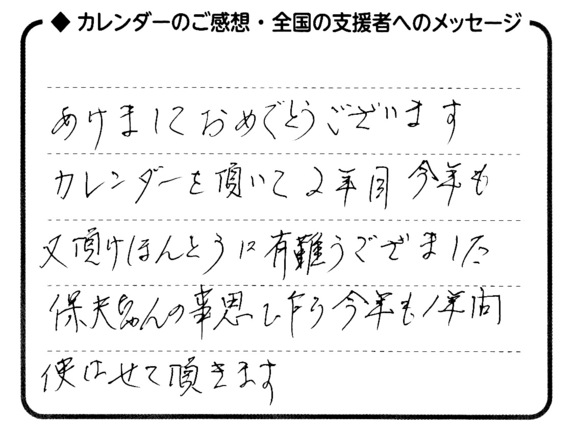 ◆ カレンダーのご感想・全国の支援者へのメッセージ
あけましておめでとうございます
カレンダーを頂いて2年目 今年も
又頂けほんとうに有難うござました
保夫ちゃんの事思い乍ら今年も1年間
使はせて頂きます